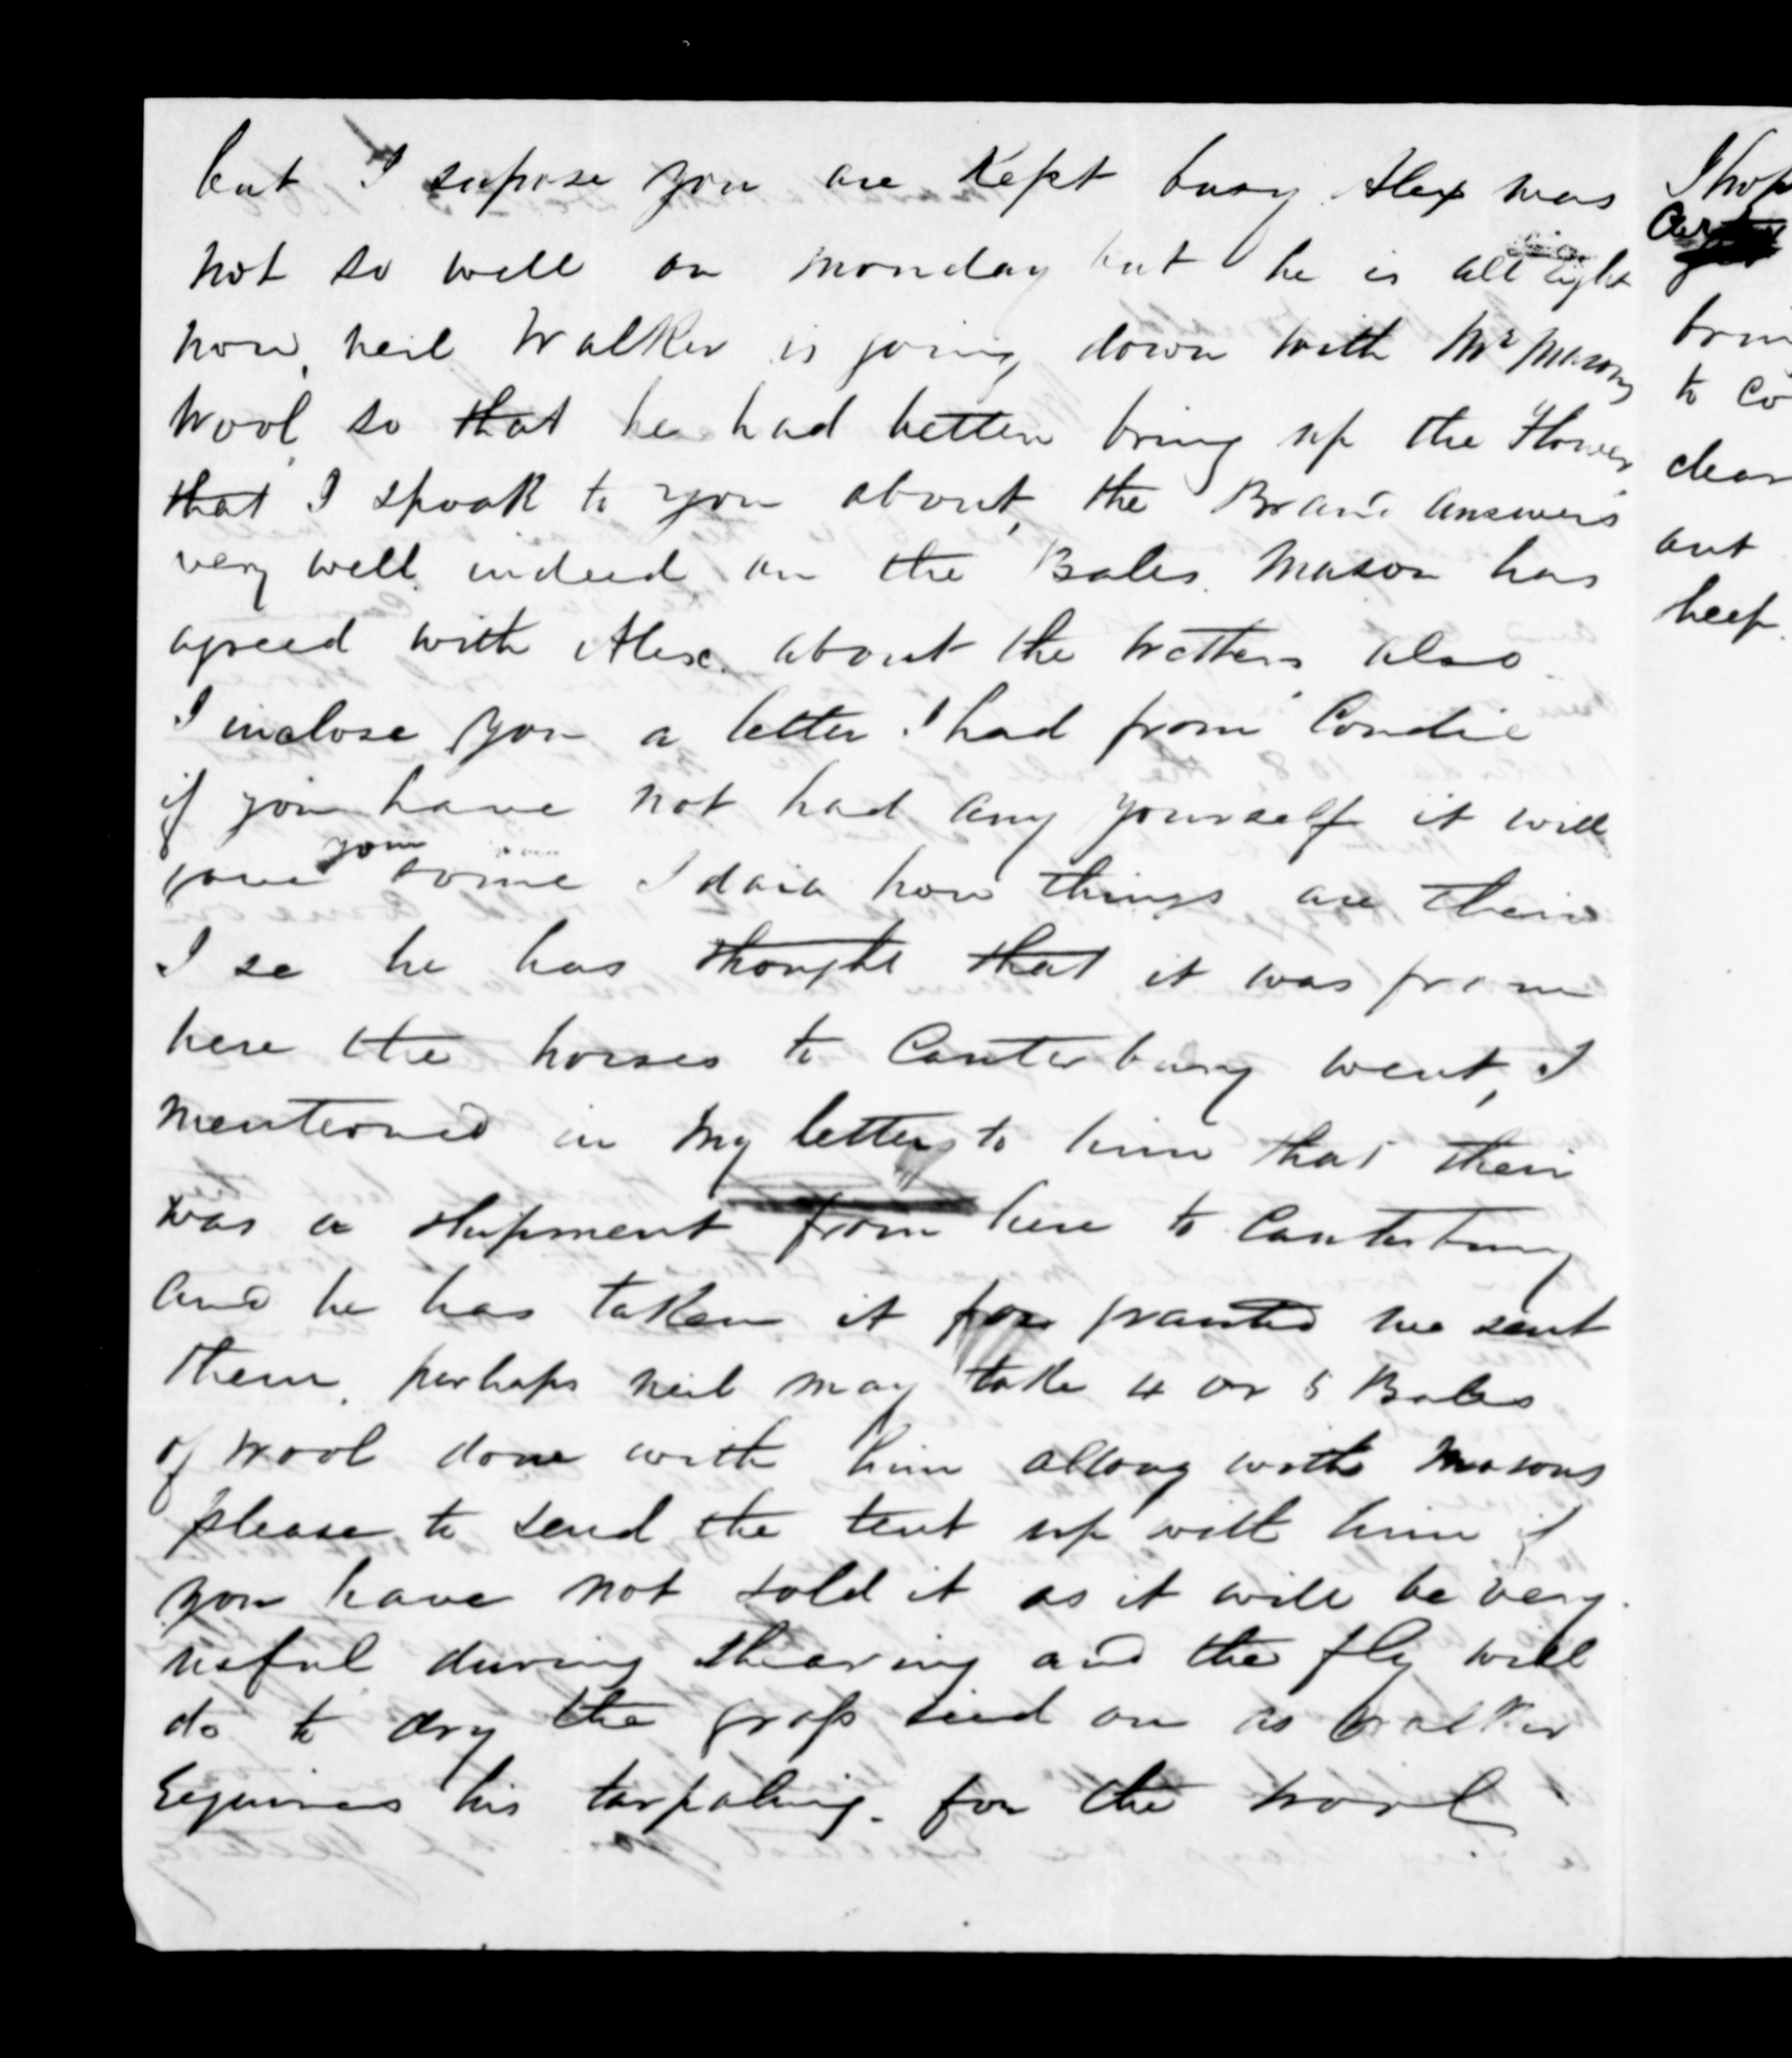 but I supose you are Kept busy Alex was
not so well on monday but he is all right
now, neil Walker is going down with Mr Masons
Wool, so that he had better bring up the Flower
that I spoak to you about, the Brand answers
very well indeed on the Bales. Mason has
agreed with Alex. about the wethers also
I inclose you a letter I had from Condie
if you have not had any yourself it will
you
gave some Idaia how things are their
I se he has thought that it was from
here the horses to Canterbury went, I
mentioned in my letter to him that their
was a shipment from here to Canterbury
and he has taken it for granted we sent
them, perhaps neil may take 4 or 5 Bales
of wool done with him allong with Masons
please to send the tent up with him if
you have not sold it as it will be very
useful during shearing and the fly will
do to dry the grass seed on as Walker
Equires his tarpaling. for the wool
I hop
bring
to Co
clear
out
keep.